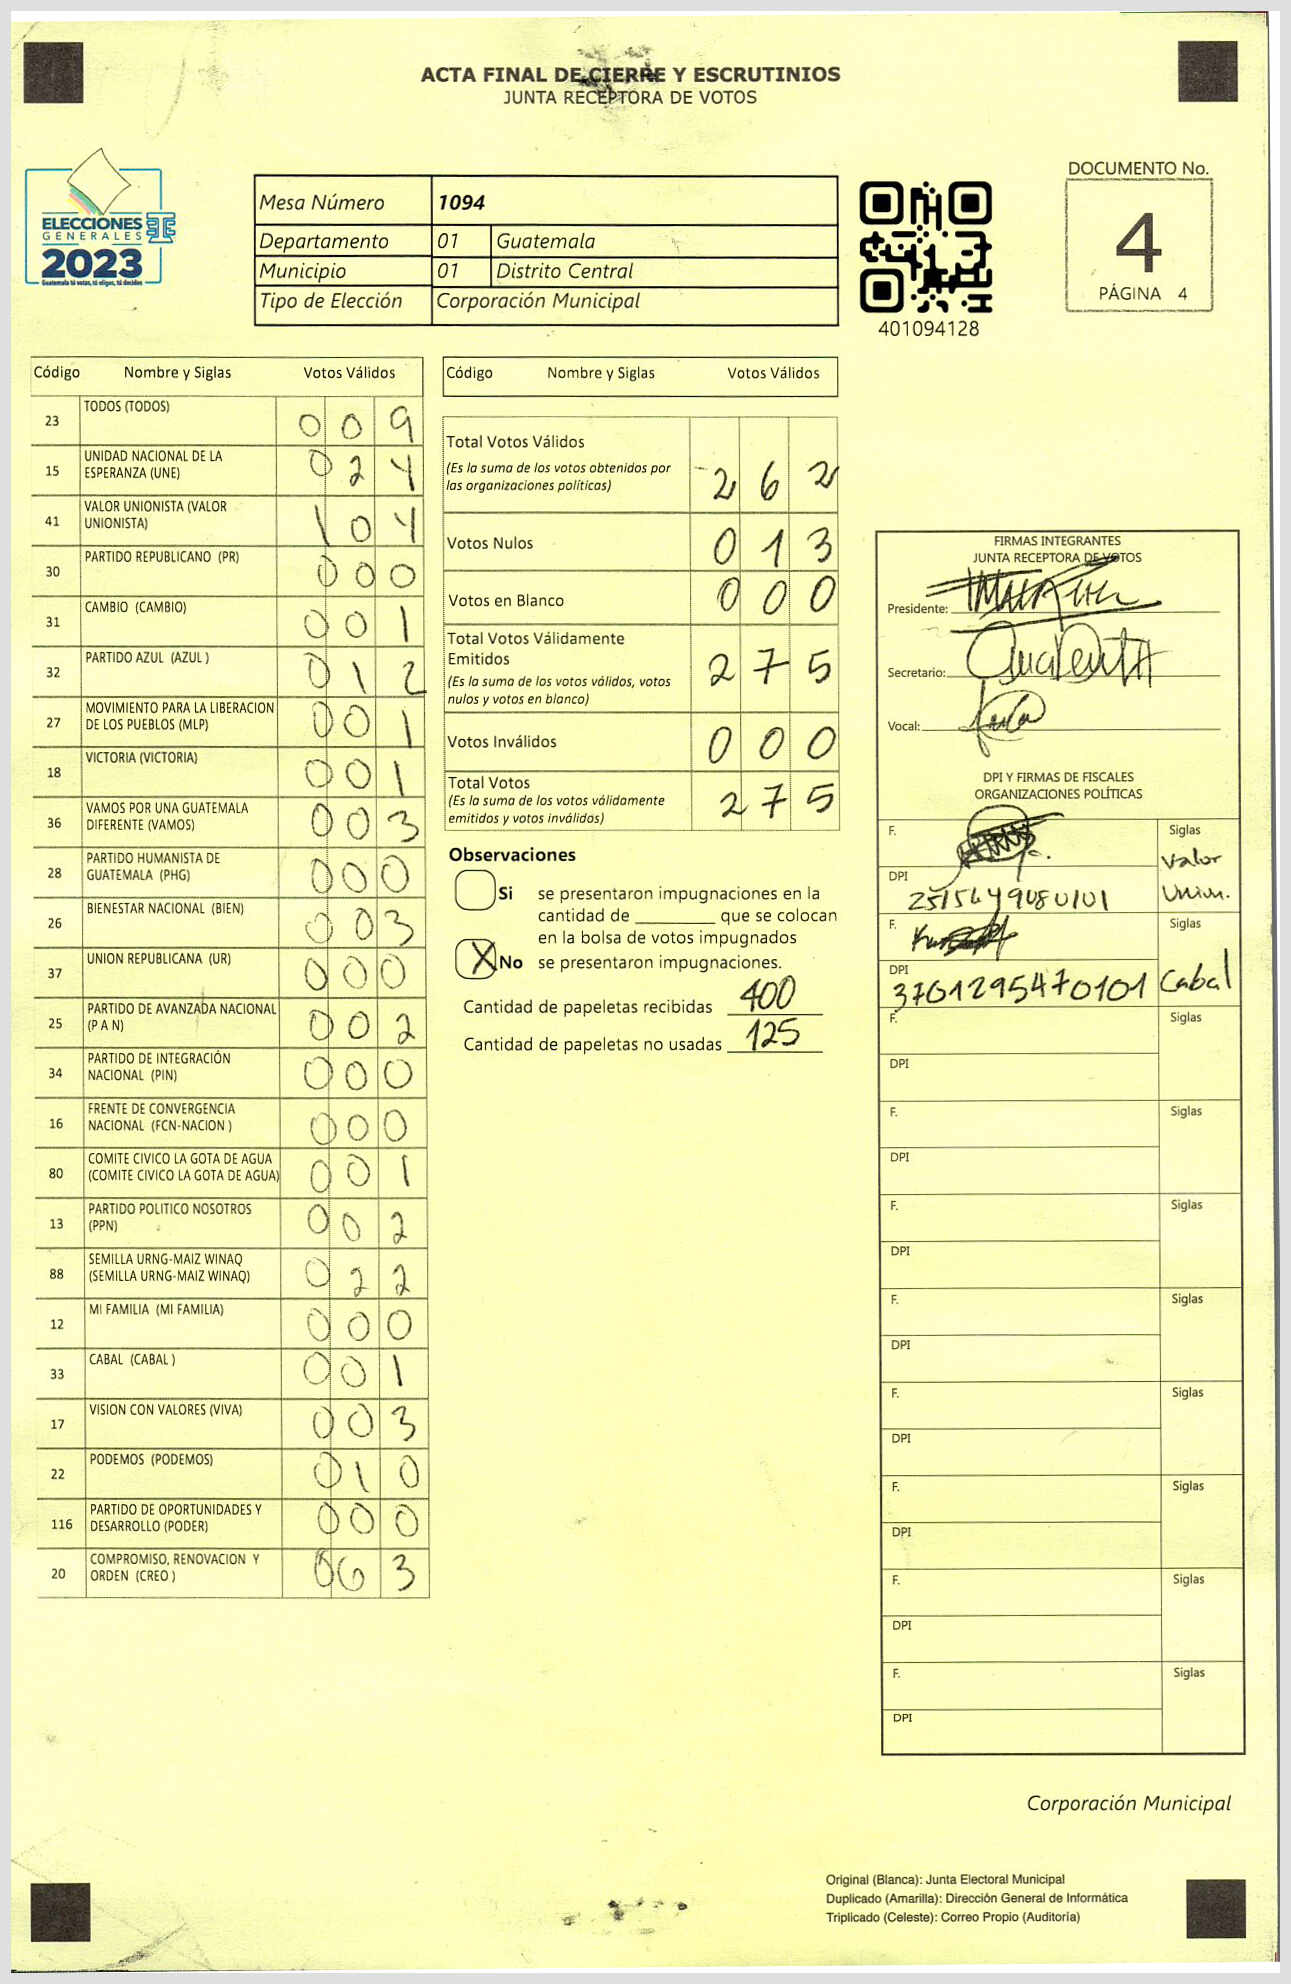 ACTA FINAL DE CIERRE Y ESCRUTINIOS
JUNTA RECEPTORA DE VOTOS
ELECCIONES
GENERALES
2023
Guatemala tú votas, tú eliges, tú decides
Mesa Número 1094
Departamento 01 Guatemala
Municipio 01 Distrito Central
Tipo de Elección Corporación Municipal
401094128
DOCUMENTO No.
4
PÁGINA 4
Código Nombre y Siglas Votos Válidos
23 TODOS (TODOS) 0 0 9
15 UNIDAD NACIONAL DE LA
ESPERANZA (UNE) 0 2 4
41 VALOR UNIONISTA (VALOR
UNIONISTA) 1 0 4
30 PARTIDO REPUBLICANO (PR) 0 0 0
31 CAMBIO (CAMBIO) 0 0 1
32 PARTIDO AZUL (AZUL ) 0 1 2
27 MOVIMIENTO PARA LA LIBERACION
DE LOS PUEBLOS (MLP) 0 0 1
18 VICTORIA (VICTORIA) 0 0 1
36 VAMOS POR UNA GUATEMALA
DIFERENTE (VAMOS) 0 0 3
28 PARTIDO HUMANISTA DE
GUATEMALA (PHG) 0 0 0
26 BIENESTAR NACIONAL (BIEN) 0 0 3
37 UNION REPUBLICANA (UR) 0 0 0
25 PARTIDO DE AVANZADA NACIONAL
(P A N) 0 0 2
34 PARTIDO DE INTEGRACIÓN
NACIONAL (PIN) 0 0 0
16 FRENTE DE CONVERGENCIA
NACIONAL (FCN-NACION ) 0 0 0
80 COMITE CIVICO LA GOTA DE AGUA
(COMITE CIVICO LA GOTA DE AGUA) 0 0 1
13 PARTIDO POLITICO NOSOTROS
(PPN) 0 0 2
88 SEMILLA URNG-MAIZ WINAQ
(SEMILLA URNG-MAIZ WINAQ) 0 2 2
12 MI FAMILIA (MI FAMILIA) 0 0 0
33 CABAL (CABAL ) 0 0 1
17 VISION CON VALORES (VIVA) 0 0 3
22 PODEMOS (PODEMOS) 0 1 0
116 PARTIDO DE OPORTUNIDADES Y
DESARROLLO (PODER) 0 0 0
20 COMPROMISO, RENOVACION Y
ORDEN (CREO ) 0 6 3
Código Nombre y Siglas Votos Válidos
Total Votos Válidos
(Es la suma de los votos obtenidos por
las organizaciones políticas) 2 6 2
Votos Nulos 0 1 3
Votos en Blanco 0 0 0
Total Votos Válidamente
Emitidos
(Es la suma de los votos válidos, votos
nulos y votos en blanco) 2 7 5
Votos Inválidos 0 0 0
Total Votos
(Es la suma de los votos válidamente
emitidos y votos inválidos) 2 7 5
Observaciones
Si se presentaron impugnaciones en la
cantidad de que se colocan
en la bolsa de votos impugnados
X No se presentaron impugnaciones.
Cantidad de papeletas recibidas 400
Cantidad de papeletas no usadas 125
FIRMAS INTEGRANTES
JUNTA RECEPTORA DE VOTOS
Presidente:
Secretario:
Vocal:
DPI Y FIRMAS DE FISCALES
ORGANIZACIONES POLÍTICAS
F. Siglas
Valor
Union.
DPI
F. Siglas
DPI 3701295470101 Cabal
F. Siglas
DPI
F. Siglas
DPI
F. Siglas
DPI
F. Siglas
DPI
F. Siglas
DPI
F. Siglas
DPI
F. Siglas
DPI
F. Siglas
DPI
Corporación Municipal
Original (Blanca): Junta Electoral Municipal
Duplicado (Amarilla): Dirección General de Informática
Triplicado (Celeste): Correo Propio (Auditoría)